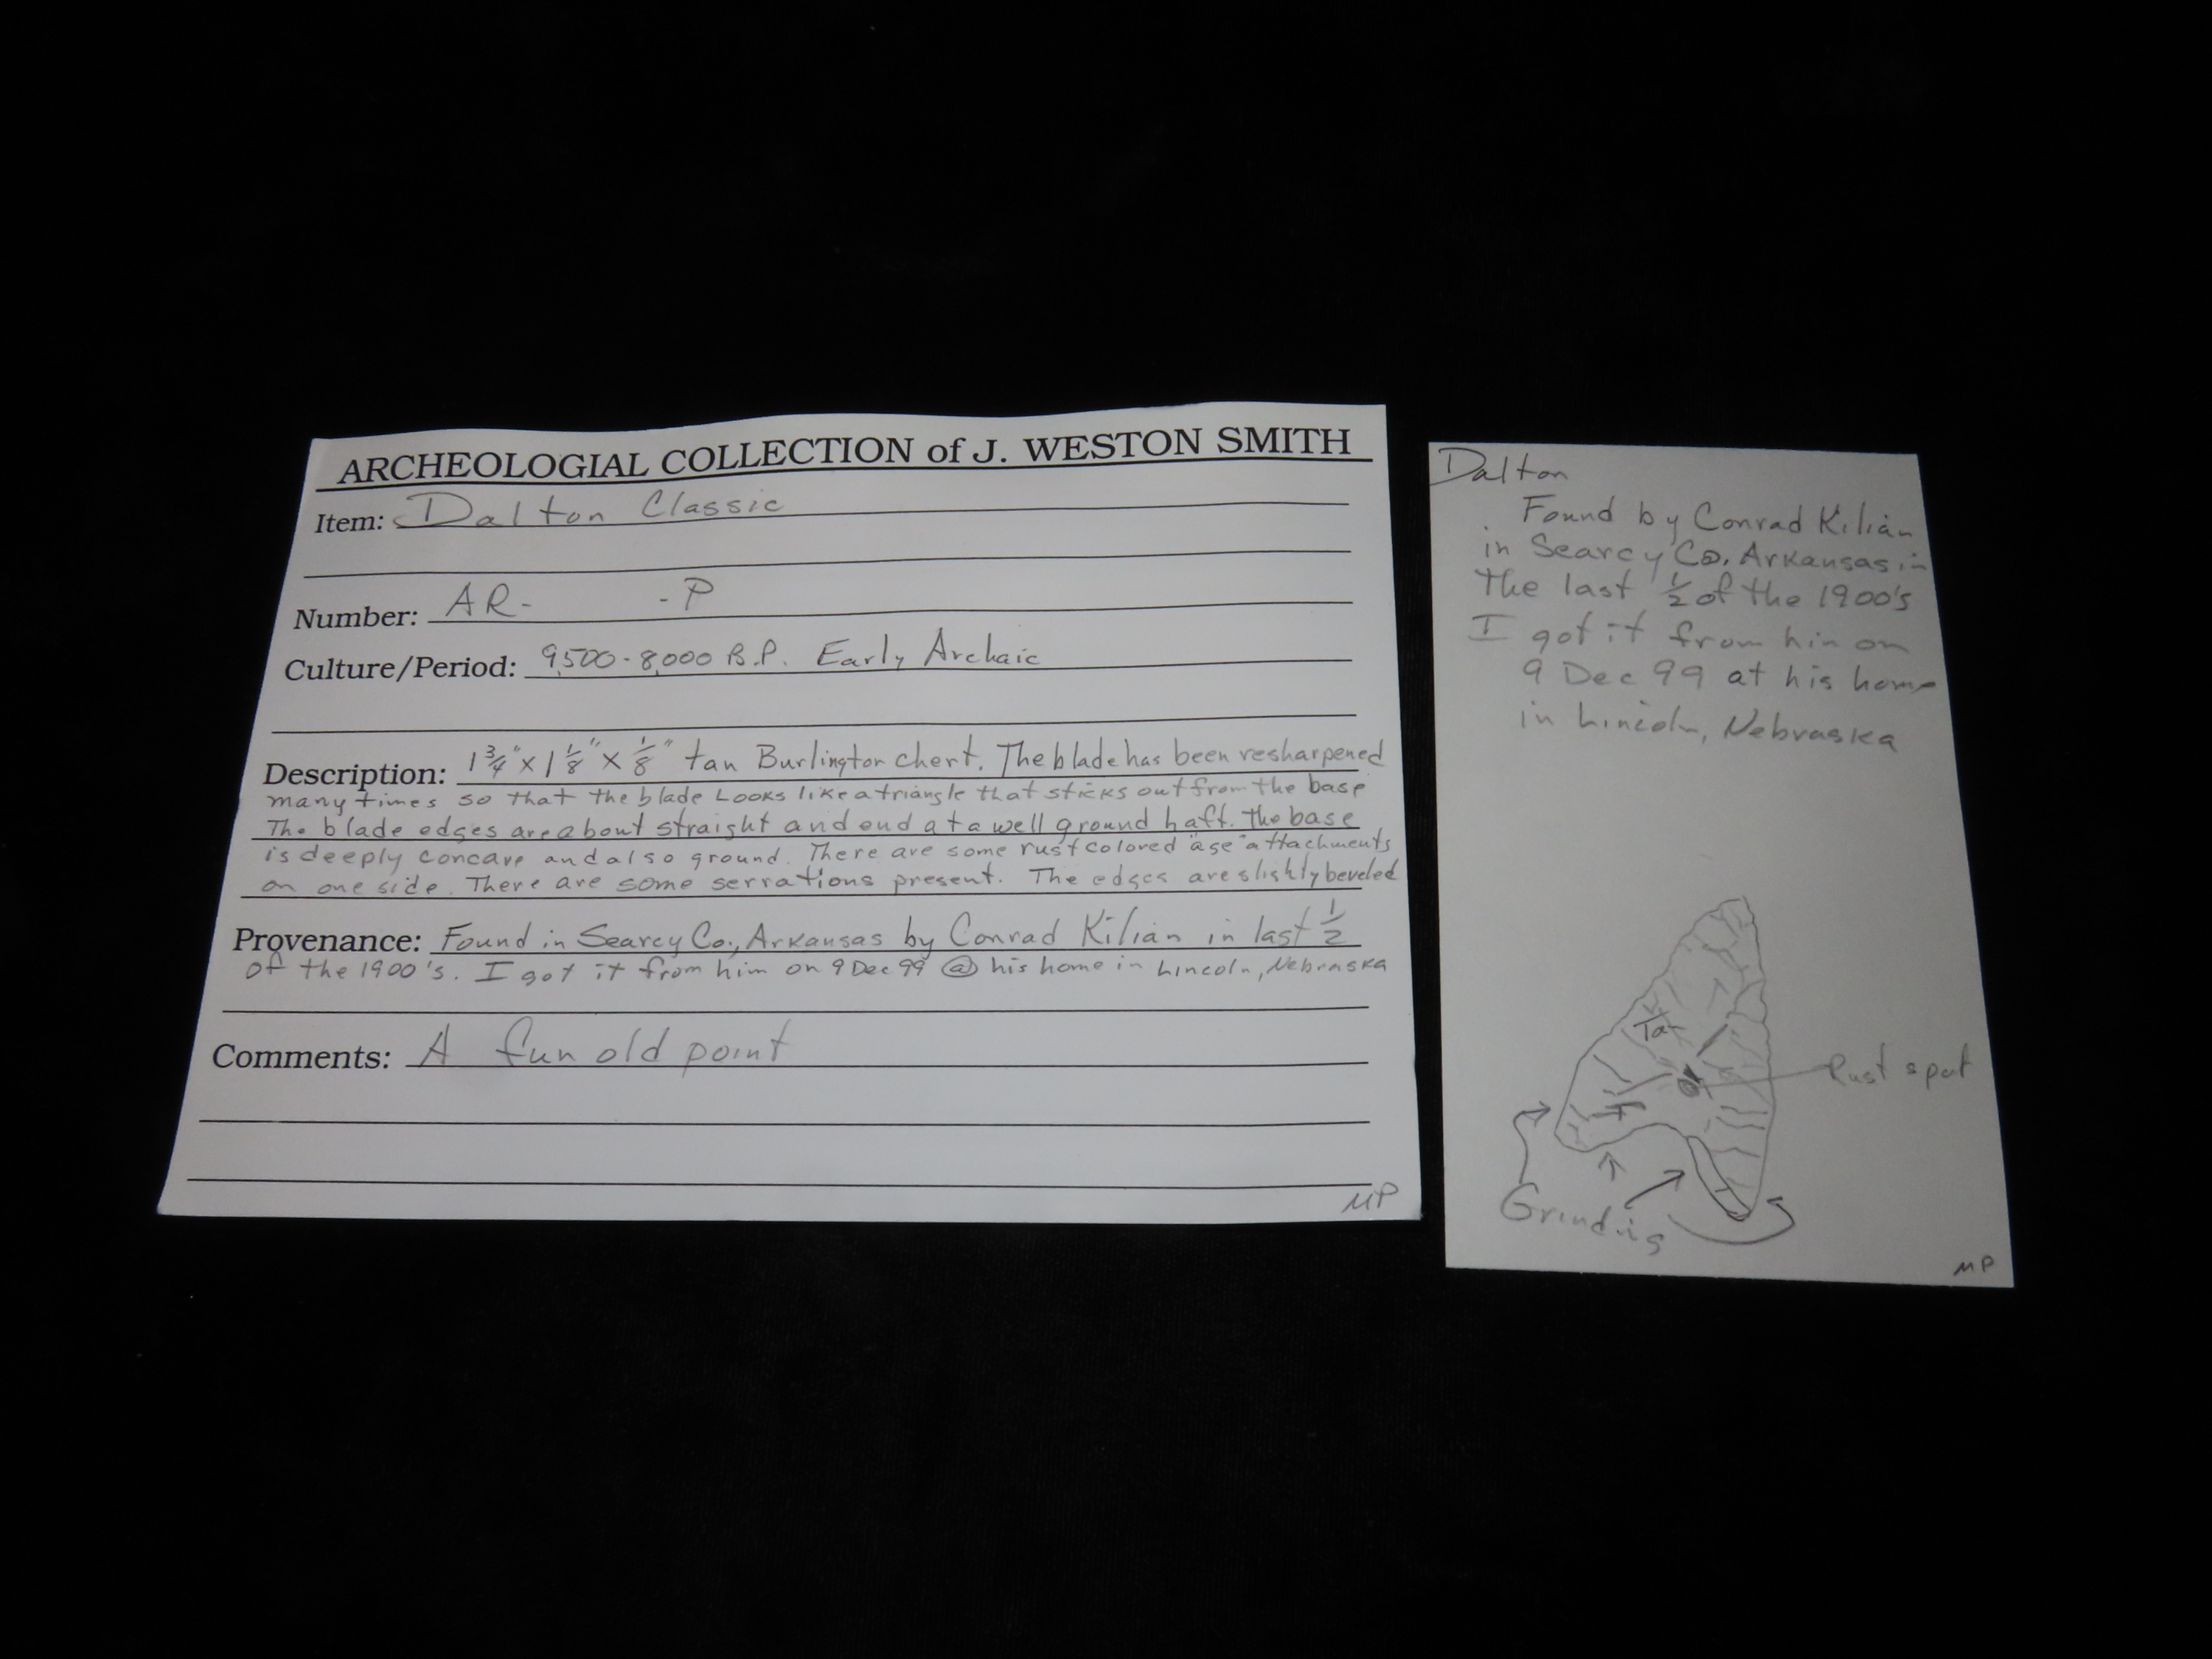 ARCHEOLOGIAL COLLECTION of J. WESTON SMITH
Item: Dalton Classic
Number: AR- -P
Culture/Period: 9,500-8,000 B.P. Early Archaic
Description: 1 3/4" x 1 1/8" x 1/8" tan Burlington chert. The blade has been resharpened
many times so that the blade Looks like a triangle that sticks out from the base
The blade edges are about straight and end at a well ground haft. The base
is deeply concave and also ground. There are some rust colored "age" attachments
on one side. There are some serrations present. The edges are slightly beveled
Provenance: Found in Searcy Co., Arkansas by Conrad Kilian in last 1/2
of the 1900's. I got it from him on 9 Dec 99 @ his home in Lincoln, Nebraska
Comments: A fun old point
MP
Dalton
Found by Conrad Kilian
in Searcy Co. Arkansas in
the last 1/2 of the 1900's
I got it from him on
9 Dec 99 at his home
in Lincoln, Nebraska
Tan
Rust spot
Grinding
MP